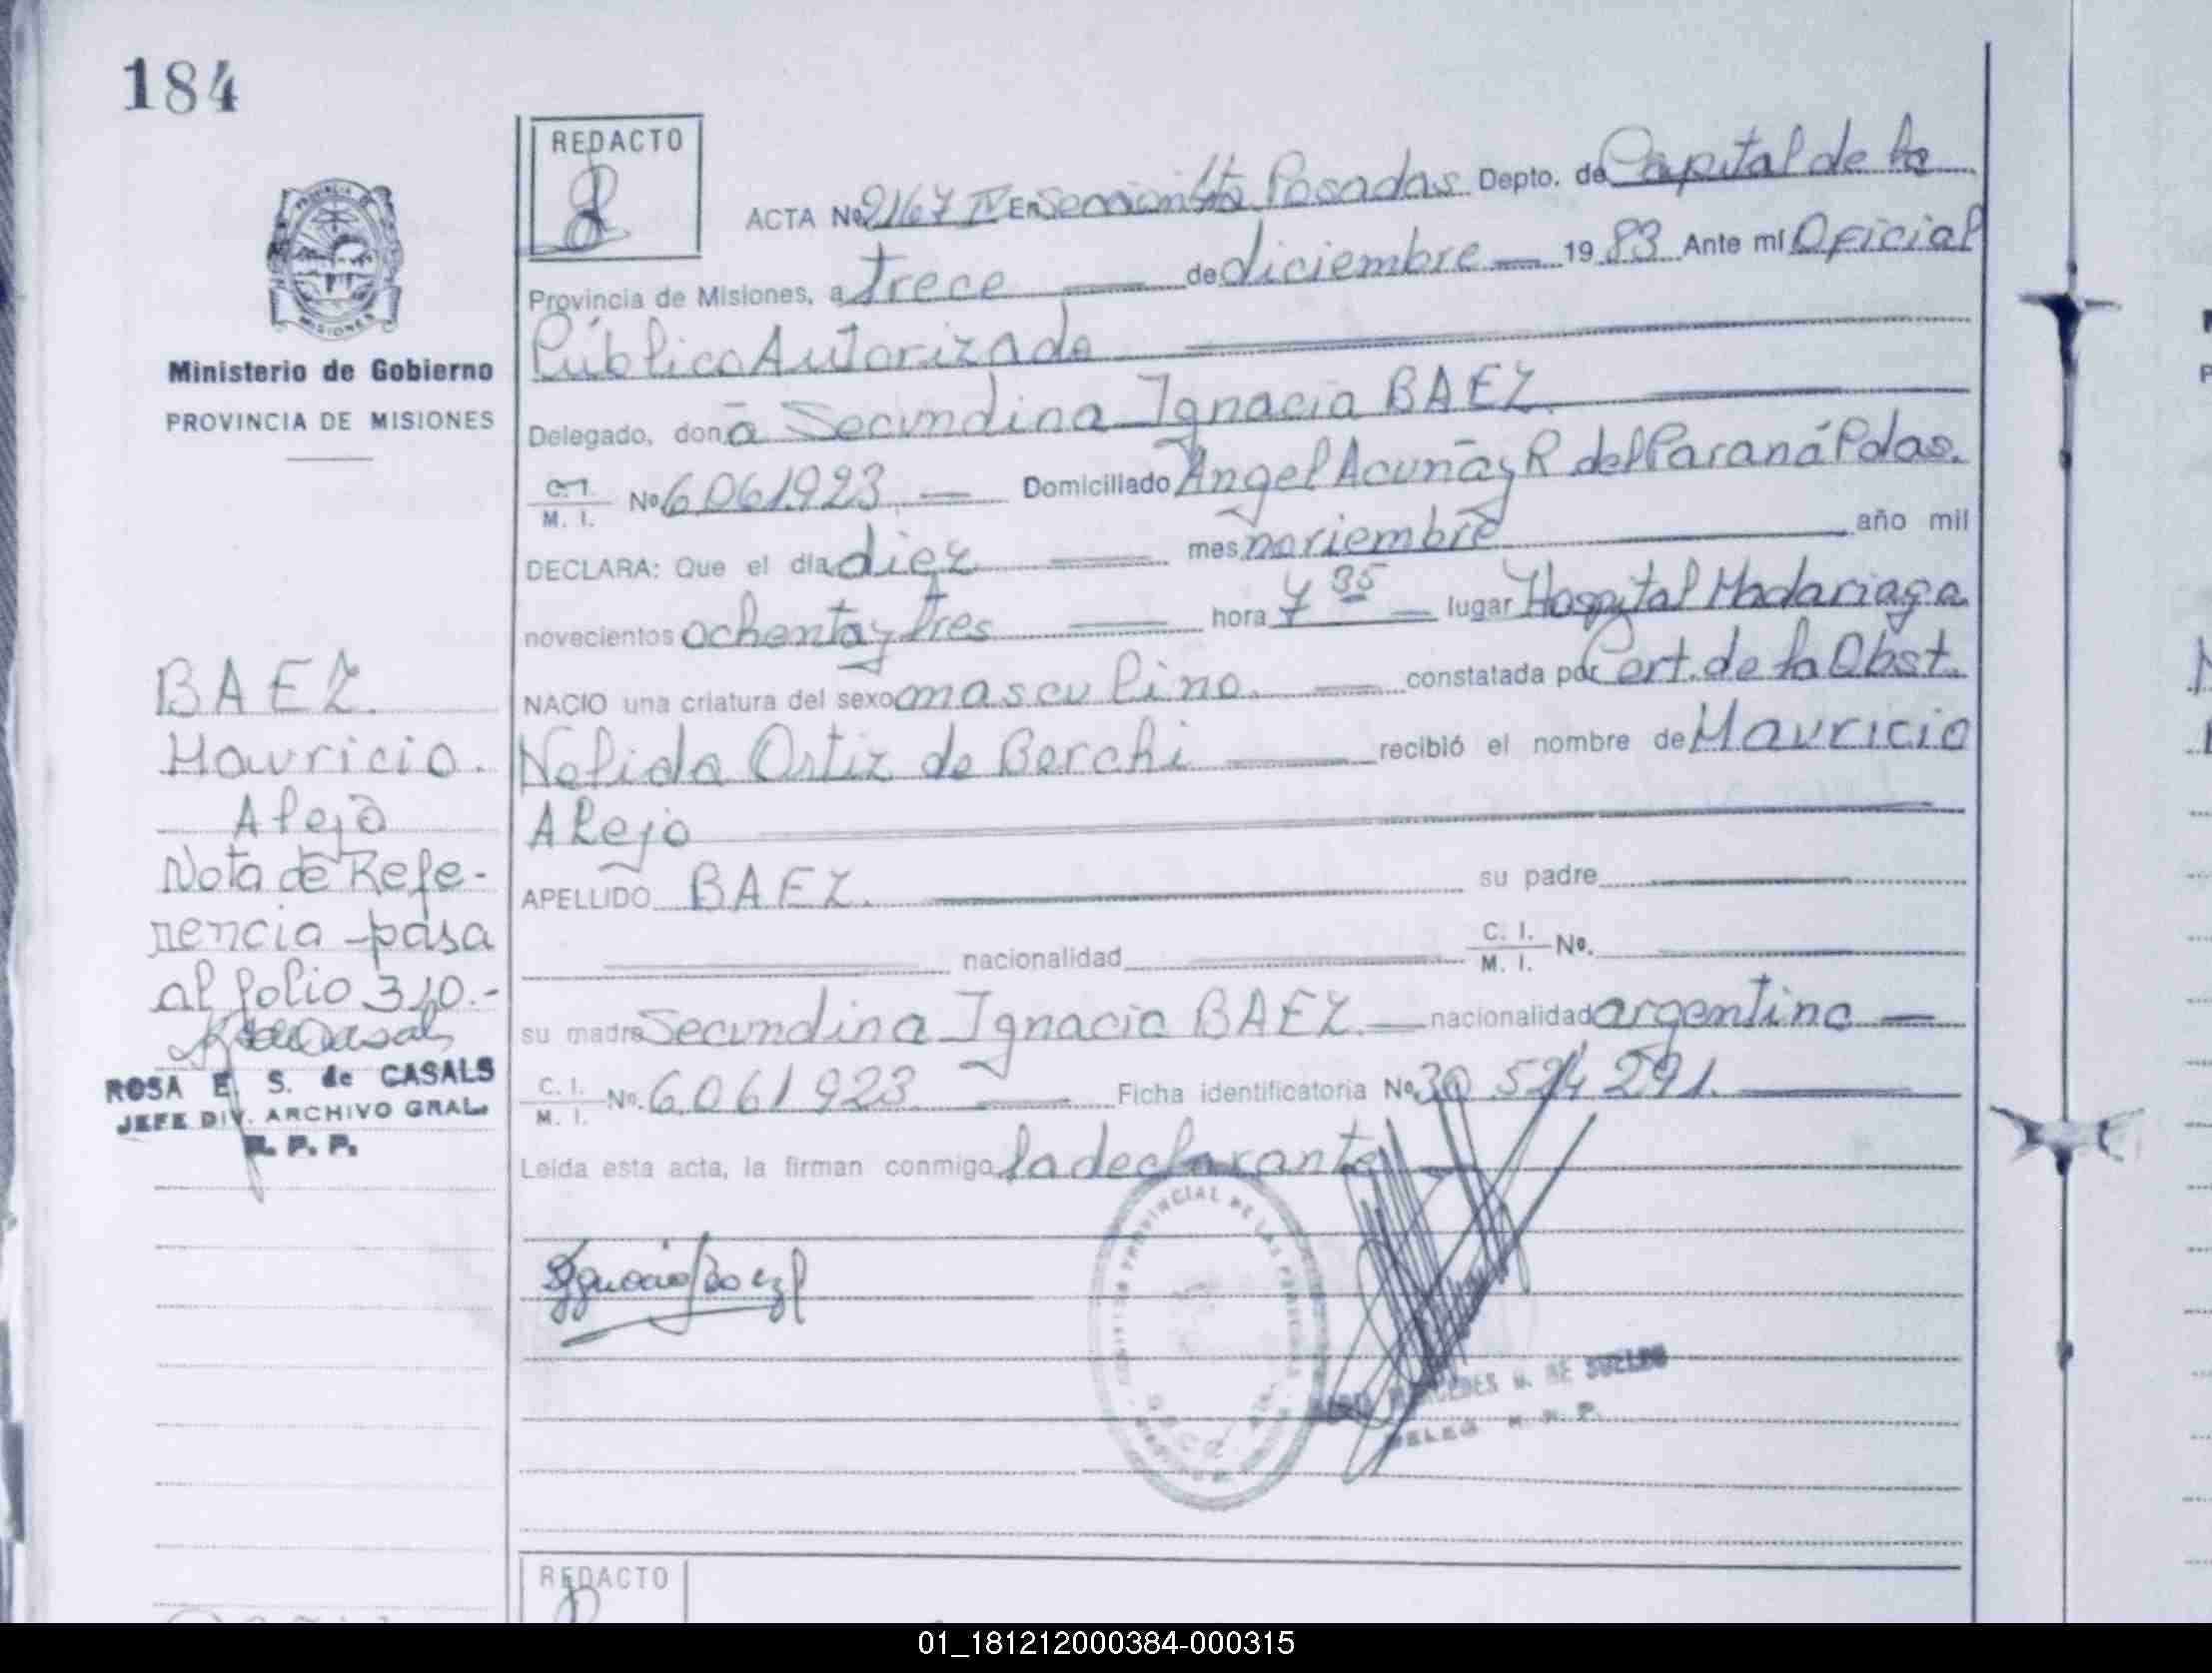 184
REDACTO
PROVINCIA DE
MISIONES
Ministerio de Gobierno
PROVINCIA DE MISIONES
ACTA Nº 2167 IV En Sección 6ta Posadas Depto. de Capital de la
Provincia de Misiones, a trece de diciembre 19 83 Ante mí Oficial
Público Autorizado
Delegado, don ã Secundina Ignacia BAEZ.
C.I. M. I. Nº 6.061.923. Domiciliado Angel Acuña y R del Paraná Pdas.
DECLARA: Que el día diez mes noviembre año mil
novecientos ochenta y tres hora 7 35 lugar Hospital Madariaga
NACIO una criatura del sexo masculino. constatada por Cert. de la Obst.
Nelida Ortiz de Berchi recibió el nombre de Mauricio
Alejo
APELLIDO BAEZ. su padre
nacionalidad C. I. M. I. Nº.
su madre Secundina Ignacia BAEZ. nacionalidad argentina
C. I. M. I. Nº. 6.061.923. Ficha identificatoria Nº 30 524 291.
Leída esta acta, la firman conmigo la declarante
BAEZ.
Mauricio.
Alejo
Nota de Refe-
rencia pasa
al folio 310.-
ROSA E. S. de CASALS
JEFE DIV. ARCHIVO GRAL.
R. P. P.
Ignacia Baez
PROVINCIAL DE LAS PERSONAS
MERCEDES N. DE
DELEG R. P.
REDACTO
01_181212000384-000315